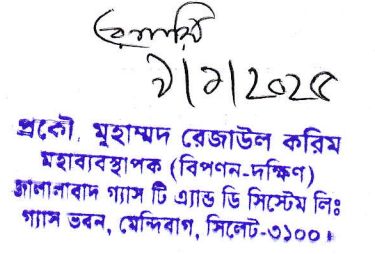 ৯/৯/২০২৫
প্রকৌ. মুহাম্মদ রেজাউল করিম
মহাব্যবস্থাপক (বিপণন-দক্ষিণ)
জালালাবাদ গ্যাস টি এ্যান্ড ডি সিস্টেম লিঃ
গ্যাস ভবন, মেন্দিবাগ, সিলেট-৩১০০।